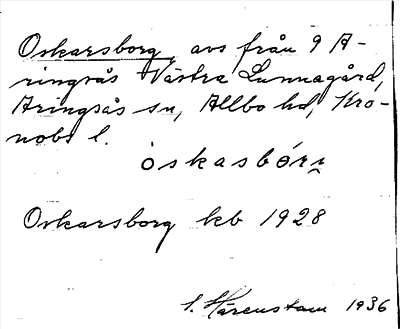 Oskarsborg, avs från 9 A-
ringsås Västra Lunnagård,
Aringsås sn, Allbo hd, Kro-
nobs l.
òskasbórı̭
Oskarsborg kb 1928
S. Härenstam 1936